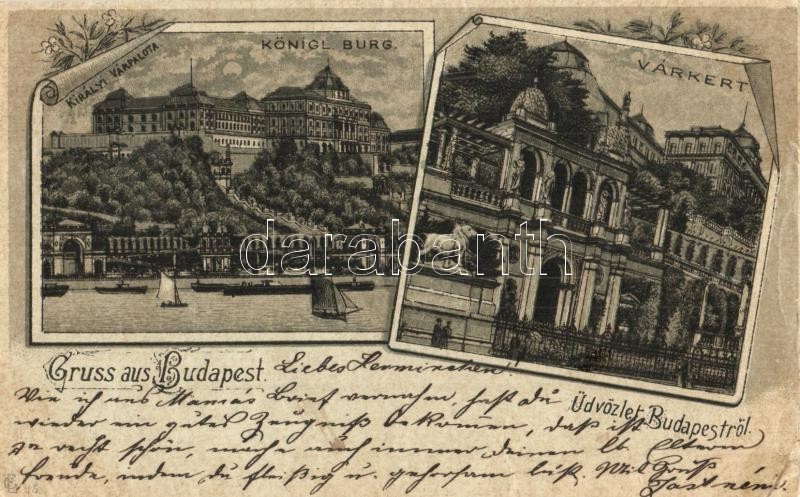 KÖNIGL. BURG.
KIRÁLYI VÁRPALOTA
VÁRKERT
darabanth.com
Gruss aus Budapest. Liebes Herminchen!
Wie ich aus Mamas Brief vernahm, hast du
Üdvözlet Budapestről.
wieder ein gutes Zeugniß bekommen, daß ist
ja recht schön, mache auch immer deinen lb. Eltern
Freude, indem du fleißig u. gehorsam bist. Mit Gruß